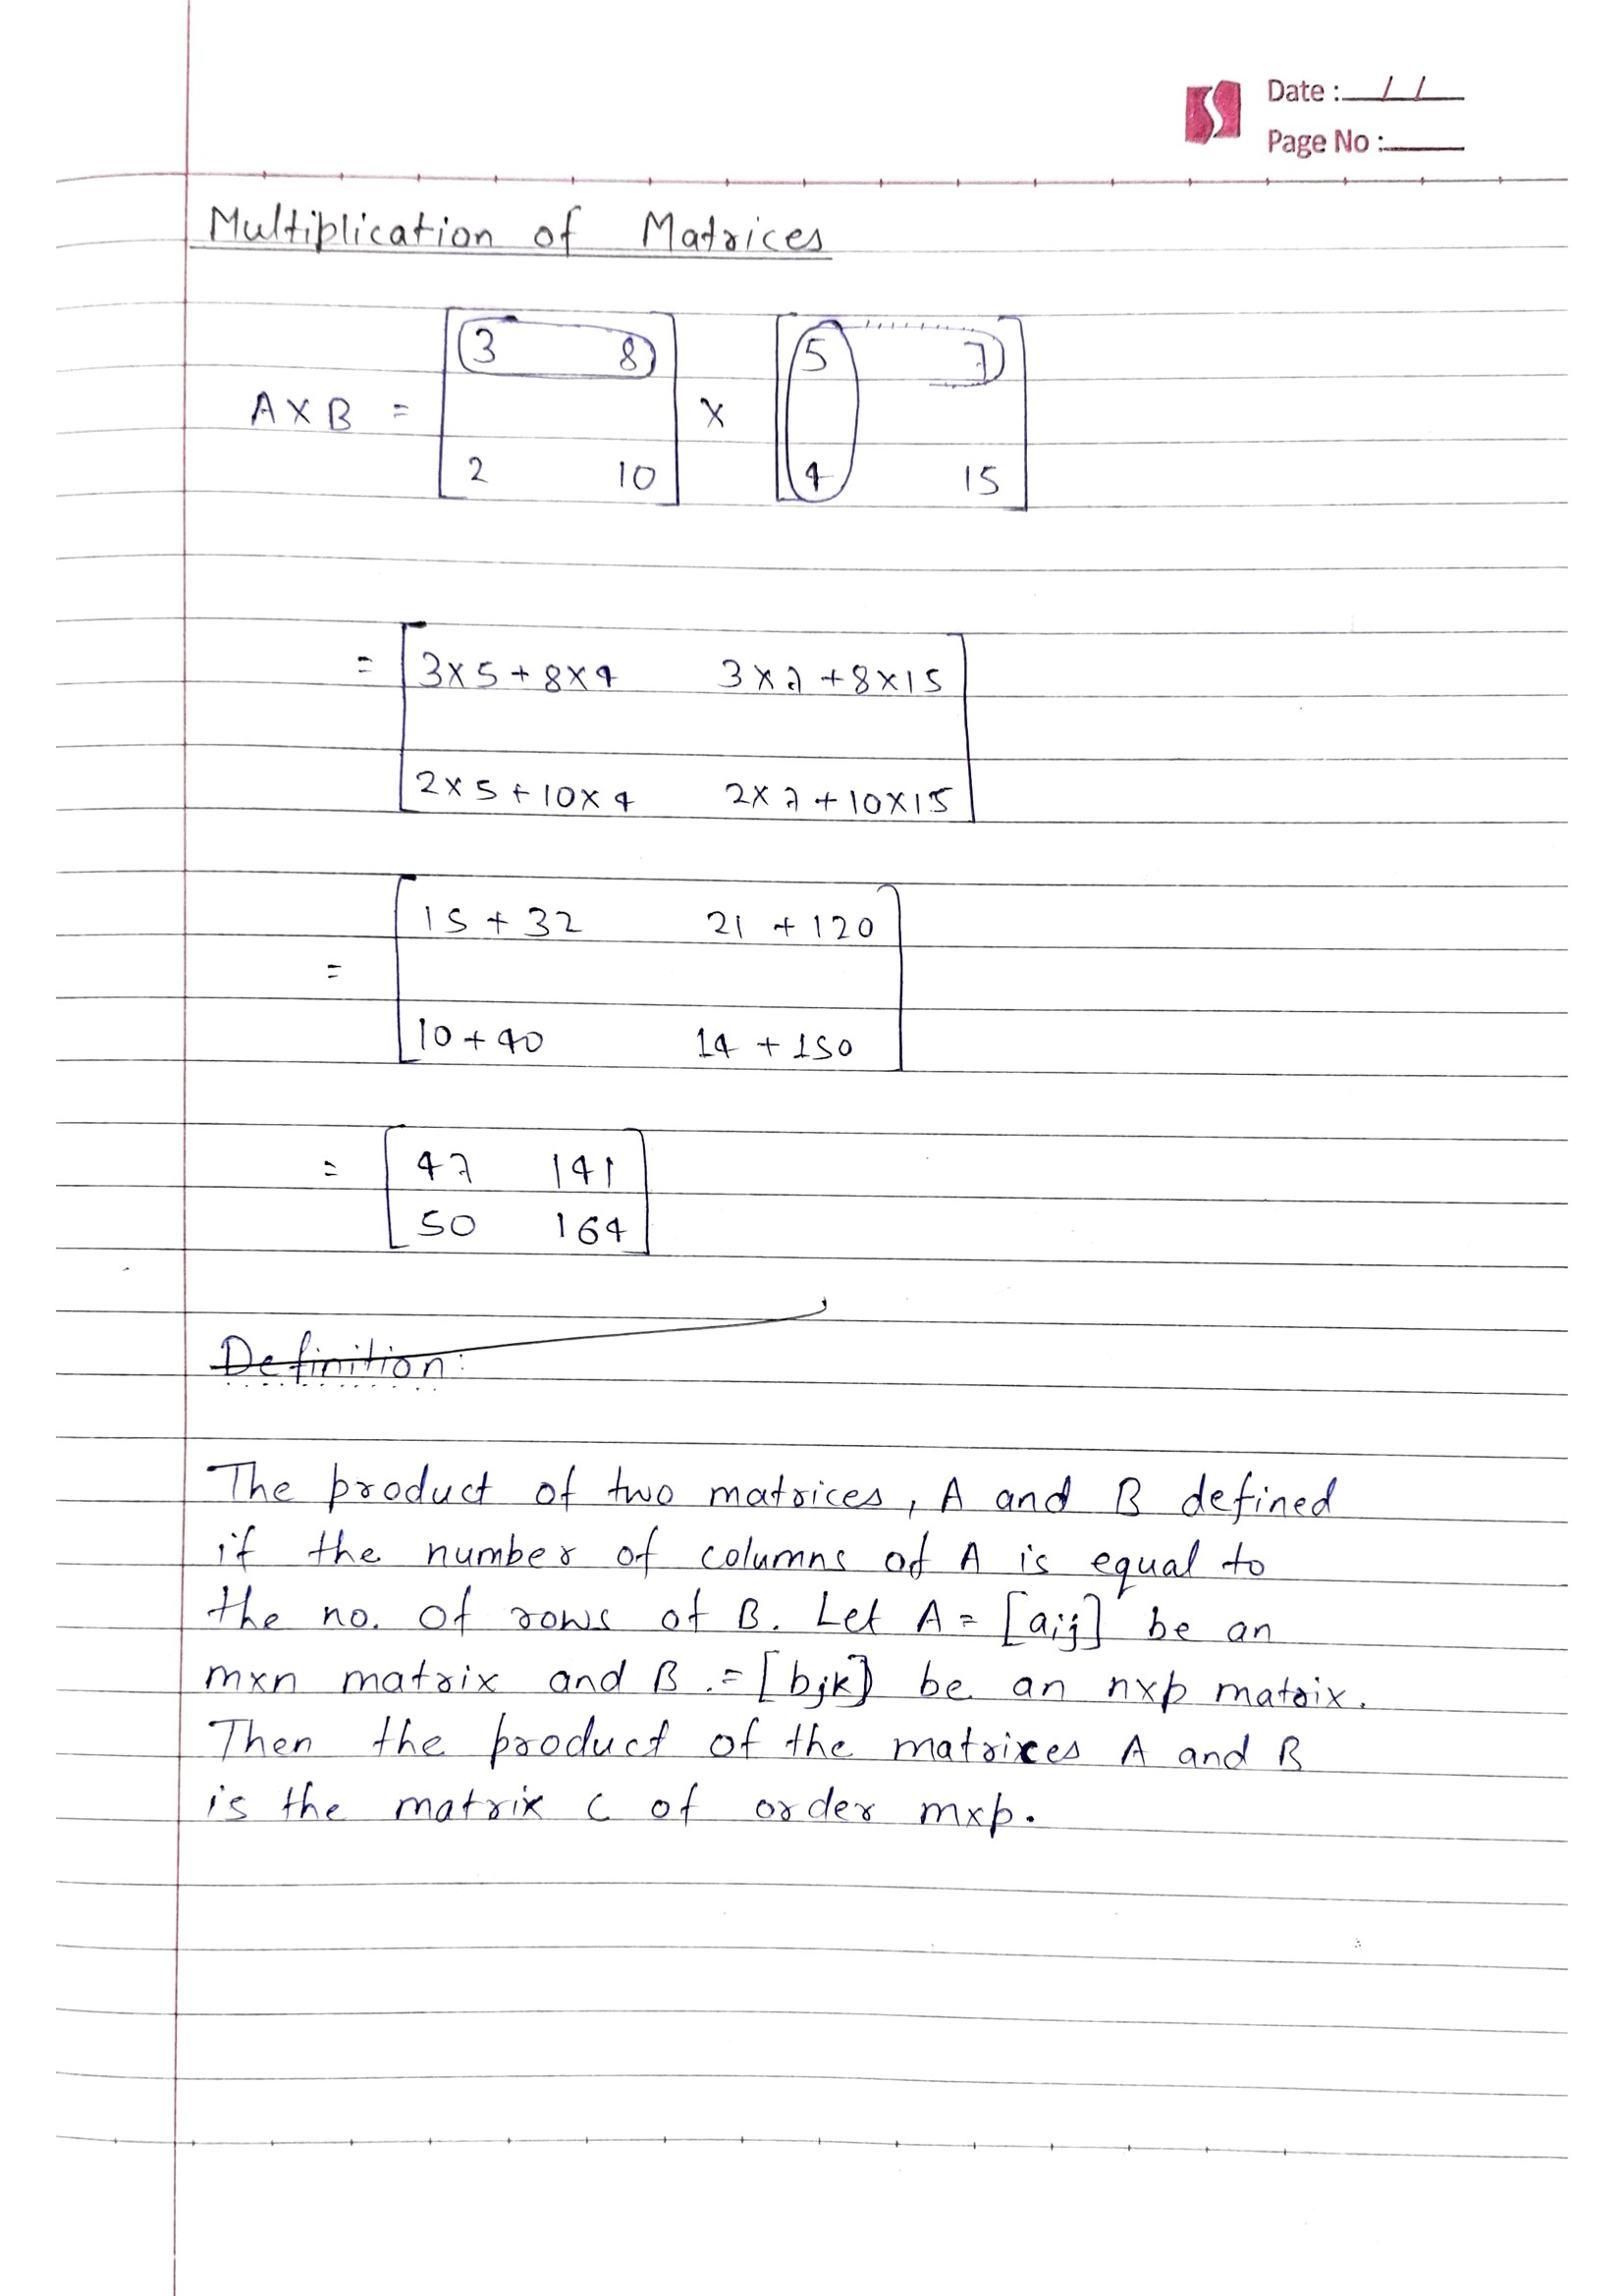 Date : / /
Page No :
Multiplication of Matrices
A X B = [ 3 8 ] X [ 5 7 ]
[ 2 10 ] [ 4 15 ]
= [ 3x5 + 8x4 3x7 + 8x15 ]
[ 2x5 + 10x4 2x7 + 10x15 ]
= [ 15 + 32 21 + 120 ]
[ 10 + 40 14 + 150 ]
= [ 47 141 ]
[ 50 164 ]
Definition:
The product of two matrices, A and B defined
if the number of columns of A is equal to
the no. of rows of B. Let A = [aij] be an
mxn matrix and B = [bjk] be an nxp matrix.
Then the product of the matrixes A and B
is the matrix C of order mxp.